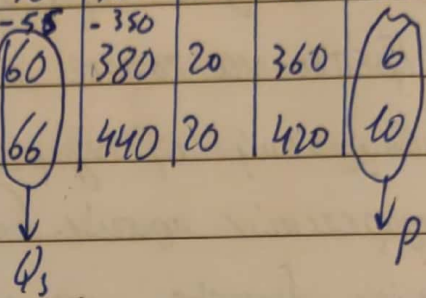 -55 -350
60 380 20 360 6
66 440 20 420 10
Qs P